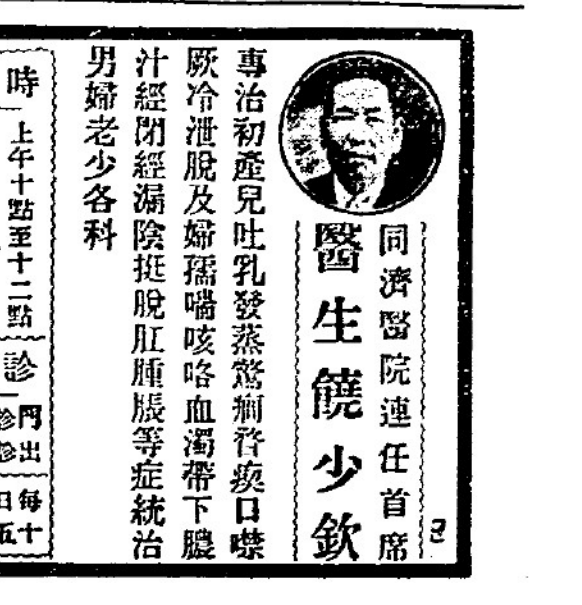 同濟醫院連任首席
醫生饒少欽
專治初產兒吐乳發蒸驚癎口噤
厥冷泄脫及婦孺喘咳咯血濁帶下膿
汁經閉經漏陰挺脫肛腫脹等症統治
男婦老少各科
時
上午十點至十二點
診
門出
診診
每十
日五